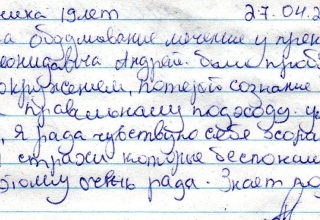 ника 19 лет 27.04.2
на обдумование лечение у
Леонидовича Андрей. были проб
окружением, потерей сознание
правильному подходу.
, я рада чувствую себя хорош
и страхи которые беспокоил
этому очень рада. Знает до